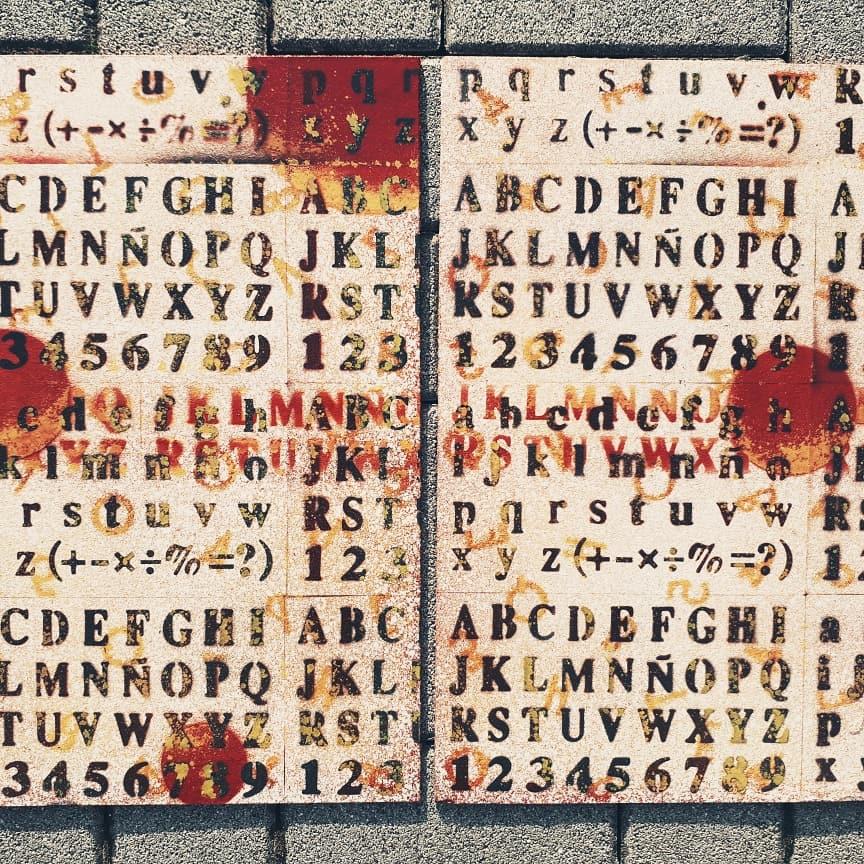 r s t u v w p q r
z (+-×÷%=?) x y z
C D E F G H I A B C
L M N Ñ O P Q J K L
T U V W X Y Z R S T
3 4 5 6 7 8 9 1 2 3
c d e f g h A B C
k l m n ñ o J K L
r s t u v w R S T
z (+-×÷%=?) 1 2 3
C D E F G H I A B C
L M N Ñ O P Q J K L
T U V W X Y Z R S T
3 4 5 6 7 8 9 1 2 3
p q r s t u v w R
x y z (+-×÷%=?) 1
A B C D E F G H I A
J K L M N Ñ O P Q J
R S T U V W X Y Z R
1 2 3 4 5 6 7 8 9 1
a b c d e f g h A
i j k l m n ñ o J
p q r s t u v w R
x y z (+-×÷%=?) 1
A B C D E F G H I a
J K L M N Ñ O P Q i j
R S T U V W X Y Z p
1 2 3 4 5 6 7 8 9 x y